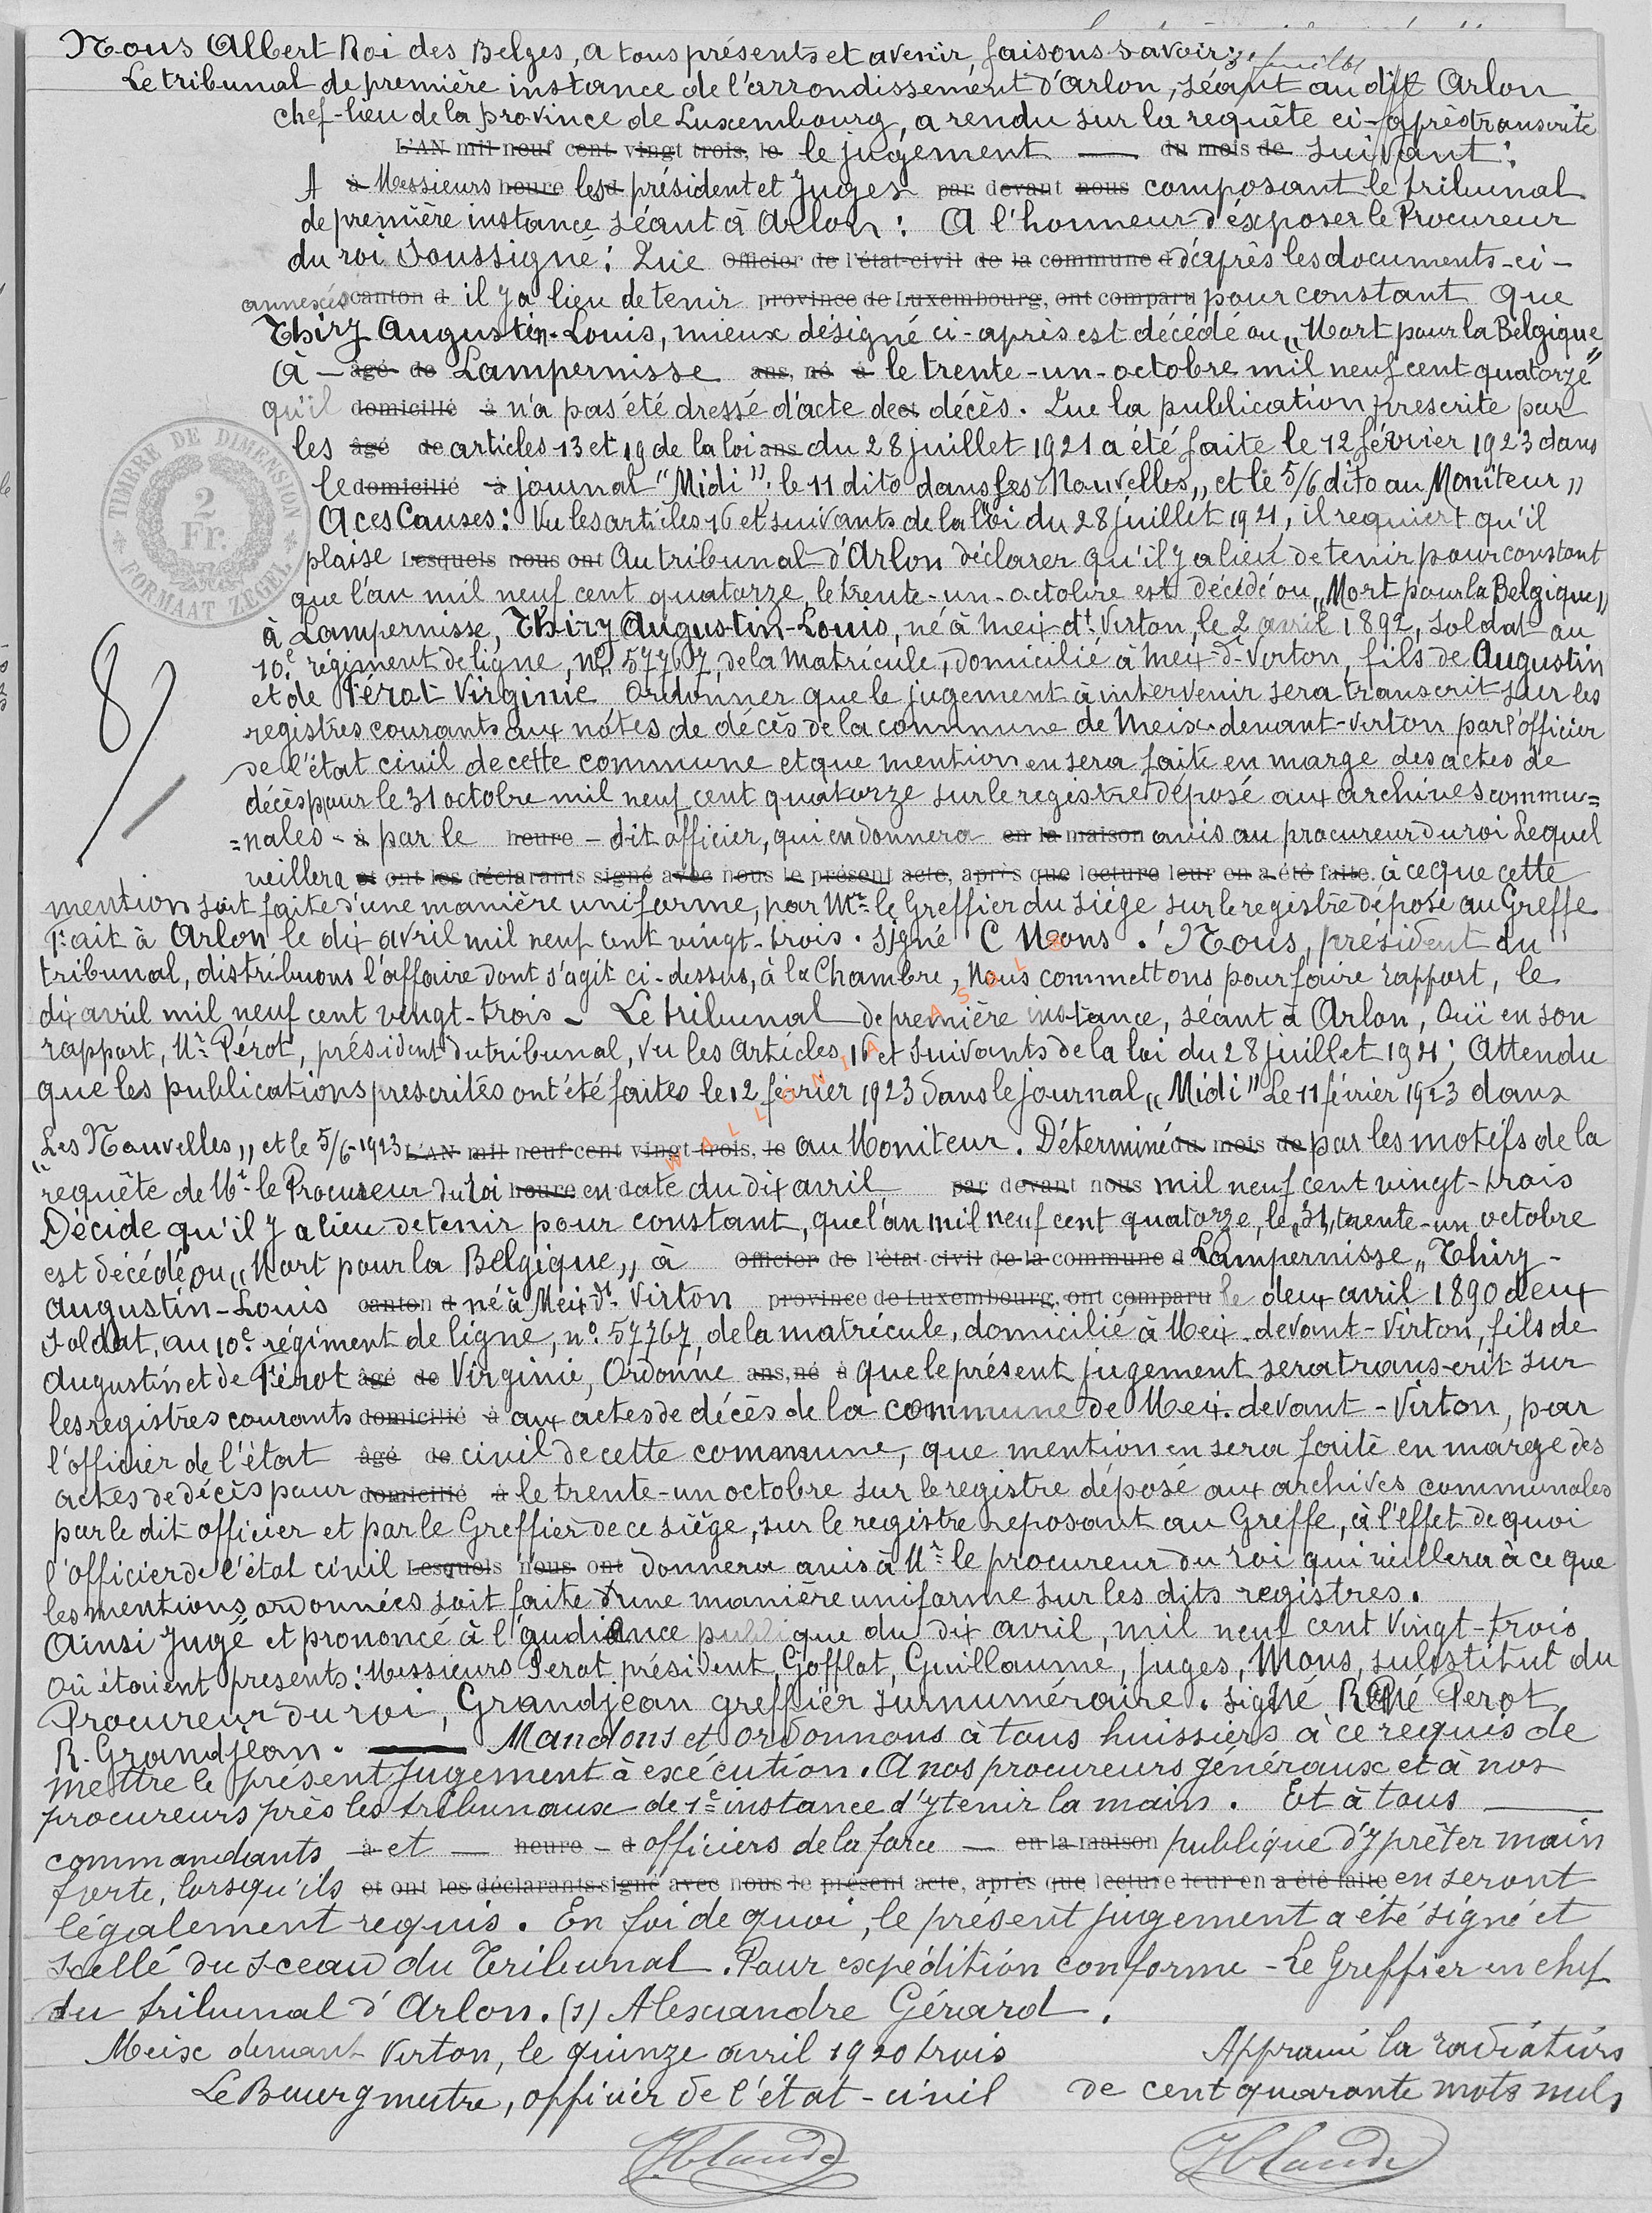 Nous Albert Roi des Belges, a tous présents et avenir, faisons savoir:
Le tribunal de première instance de l'arrondissement d'Arlon, séant au dit Arlon
chef-lieu de la province de Luxembourg, a rendu sur la requête ci-après transcrite
L'AN mil neuf cent vingt trois, le le jugement — du mois de suivant:
A à Messieurs heure les d président et Juges par devant nous composant le tribunal
de première instance séant à Arlon: A l'honneur d'éxposer le Procureur
du roi Soussigné: Que Officier de l'état-civil de la commune d d'après les documents-ci-
annexés canton d il y a lieu de tenir province de Luxembourg, ont comparu pour constant que
Thiry Augustin-Louis, mieux désigné ci-après est décédé ou „Mort pour la Belgique"
à — âgé de Lampernisse ans, né à le trente-un-octobre mil neuf cent quatorze
qu'il domicilié à n'a pas été dressé d'acte de et décès. Que la publication prescrite par
les âgé de articles 13 et 19 de la loi ans du 28 juillet 1921 a été faite le 12 février 1923 dans
le domicilié à journal "Midi"; le 11 dito dans „Les Nouvelles„ et le 5/6 dito au Moniteur„
A ces Causes: Vu les articles 16 et suivants de la loi du 28 juillet 1921, il requiert qu'il
plaise Lesquels nous ont Au tribunal d'Arlon déclarer qu'il y a lieu de tenir pour constant
que l'an mil neuf cent quatorze, le trente-un-octobre est décédé ou „Mort pour la Belgique„
à Lampernisse, Thiry Augustin-Louis, né à Meix dt. Virton, le 2 avril 1892, soldat au
10e régiment de ligne, no 577607, de la Matricule, domicilié à Meix-dt-Virton, fils de Augustin
et de Pérot Virginie Ordonner que le jugement à intervenir sera transcrit sur les
registres courants aux nôtes de décès de la commune de Meix-devant-Virton par l'officier
de l'état civil de cette commune et que mention en sera faite en marge des actes de
décès pour le 31 octobre mil neuf cent quatorze sur le registre déposé aux archives commu=
=nales - à par le heure - dit officier, qui en donnera en la maison avis au procureur du roi Lequel
veillera et ont les déclarants signé avec nous le présent acte, après que lecture leur en a été faite. à ce que cette
mention soit faite d'une manière uniforme, par Mr. le Greffier du siège sur le registre déposé au Greffe
Fait à Arlon le dix avril mil neuf cent vingt-trois. Signé C Mons. Nous, président du
tribunal, distribuons l'affaire dont s'agit ci-dessus, à la Chambre, Nous commettons pour faire rapport, le
dix avril mil neuf cent vingt-trois - Le tribunal de première instance, séant à Arlon, Ouï en son
rapport, Mr. Pérot, président du tribunal, vu les Articles, 16 et suivants de la loi du 28 juillet 1921; Attendu
que les publications prescrites ont été faites le 12 février 1923 dans le journal „Midi" Le 11 février 1923 dans
"Les Nouvelles„ et le 5/6-1923 L'AN mil neuf cent vingt trois, le au Moniteur. Déterminé du mois de par les motifs de la
requête de Mr. le Procureur du roi heure en date du dix avril par devant nous mil neuf cent vingt-trois
Décide qu'il y a lieu de tenir pour constant, que l'an mil neuf cent quatorze, le „31„ trente-un octobre
est décédé ou „Mort pour la Belgique„ à Officier de l'état civil de la commune d Lampernisse „Thiry-
Augustin-Louis canton d né à Meix dt. Virton province de Luxembourg, ont comparu le deux avril 1890 deux
soldat, au 10e régiment de ligne, no. 57767, de la matricule, domicilié à Meix-devant-Virton, fils de
Augustin et de Pérot âgé de Virginie, Ordonne ans, né à que le présent jugement sera transcrit sur
les registres courants domicilié à aux actes de décès de la commune de Meix-devant-Virton, par
l'officier de l'état âgé de civil de cette commune, que mention en sera faite en marge des
actes de décès pour domicilié à le trente-un octobre sur le registre déposé aux archives communales
par le dit officier et par le Greffier de ce siège, sur le registre reposant au Greffe, à l'effet de quoi
l'officier de l'état civil Lesquels nous ont donnera avis à Mr. le procureur du roi qui veillera à ce que
les mentions ordonnées soit faite d'une manière uniforme sur les dits registres.
Ainsi Jugé et prononcé à l'audience publique du dix avril, mil neuf cent vingt-trois
Où étaient présents: Messieurs Perot président, Gofflot, Guillaume, juges, Mons, substitut du
Procureur du roi, Grandjean greffier surnuméraire. Signé René Perot,
R. Grandjean. — Mandons et ordonnons à tous huissiers à ce requis de
mettre le présent jugement à exécution. A nos procureurs généraux et à nos
procureurs près les tribunaux de 1e instance d'y tenir la main. Et à tous —
commandants à et — heure - d officiers de la force — en la maison publique d'y prêter main
forte, lorsqu'ils et ont les déclarants signé avec nous le présent acte, après que lecture leur en a été faite en seront
légalement requis. En foi de quoi, le présent jugement a été signé et
scellé du sceau du Tribunal. Pour expédition conforme - Le Greffier en chef
du tribunal d'Arlon. (s) Alexandre Gérard.
Meix devant Virton, le quinze avril 1920 trois
Le Bourgmestre, officier de l'état-civil
Approuvé la radiations
de cent quarante mots nuls
TIMBRE DE DIMENSION
2
Fr.
FORMAAT ZEGEL
8/
WALLONIA ASBL